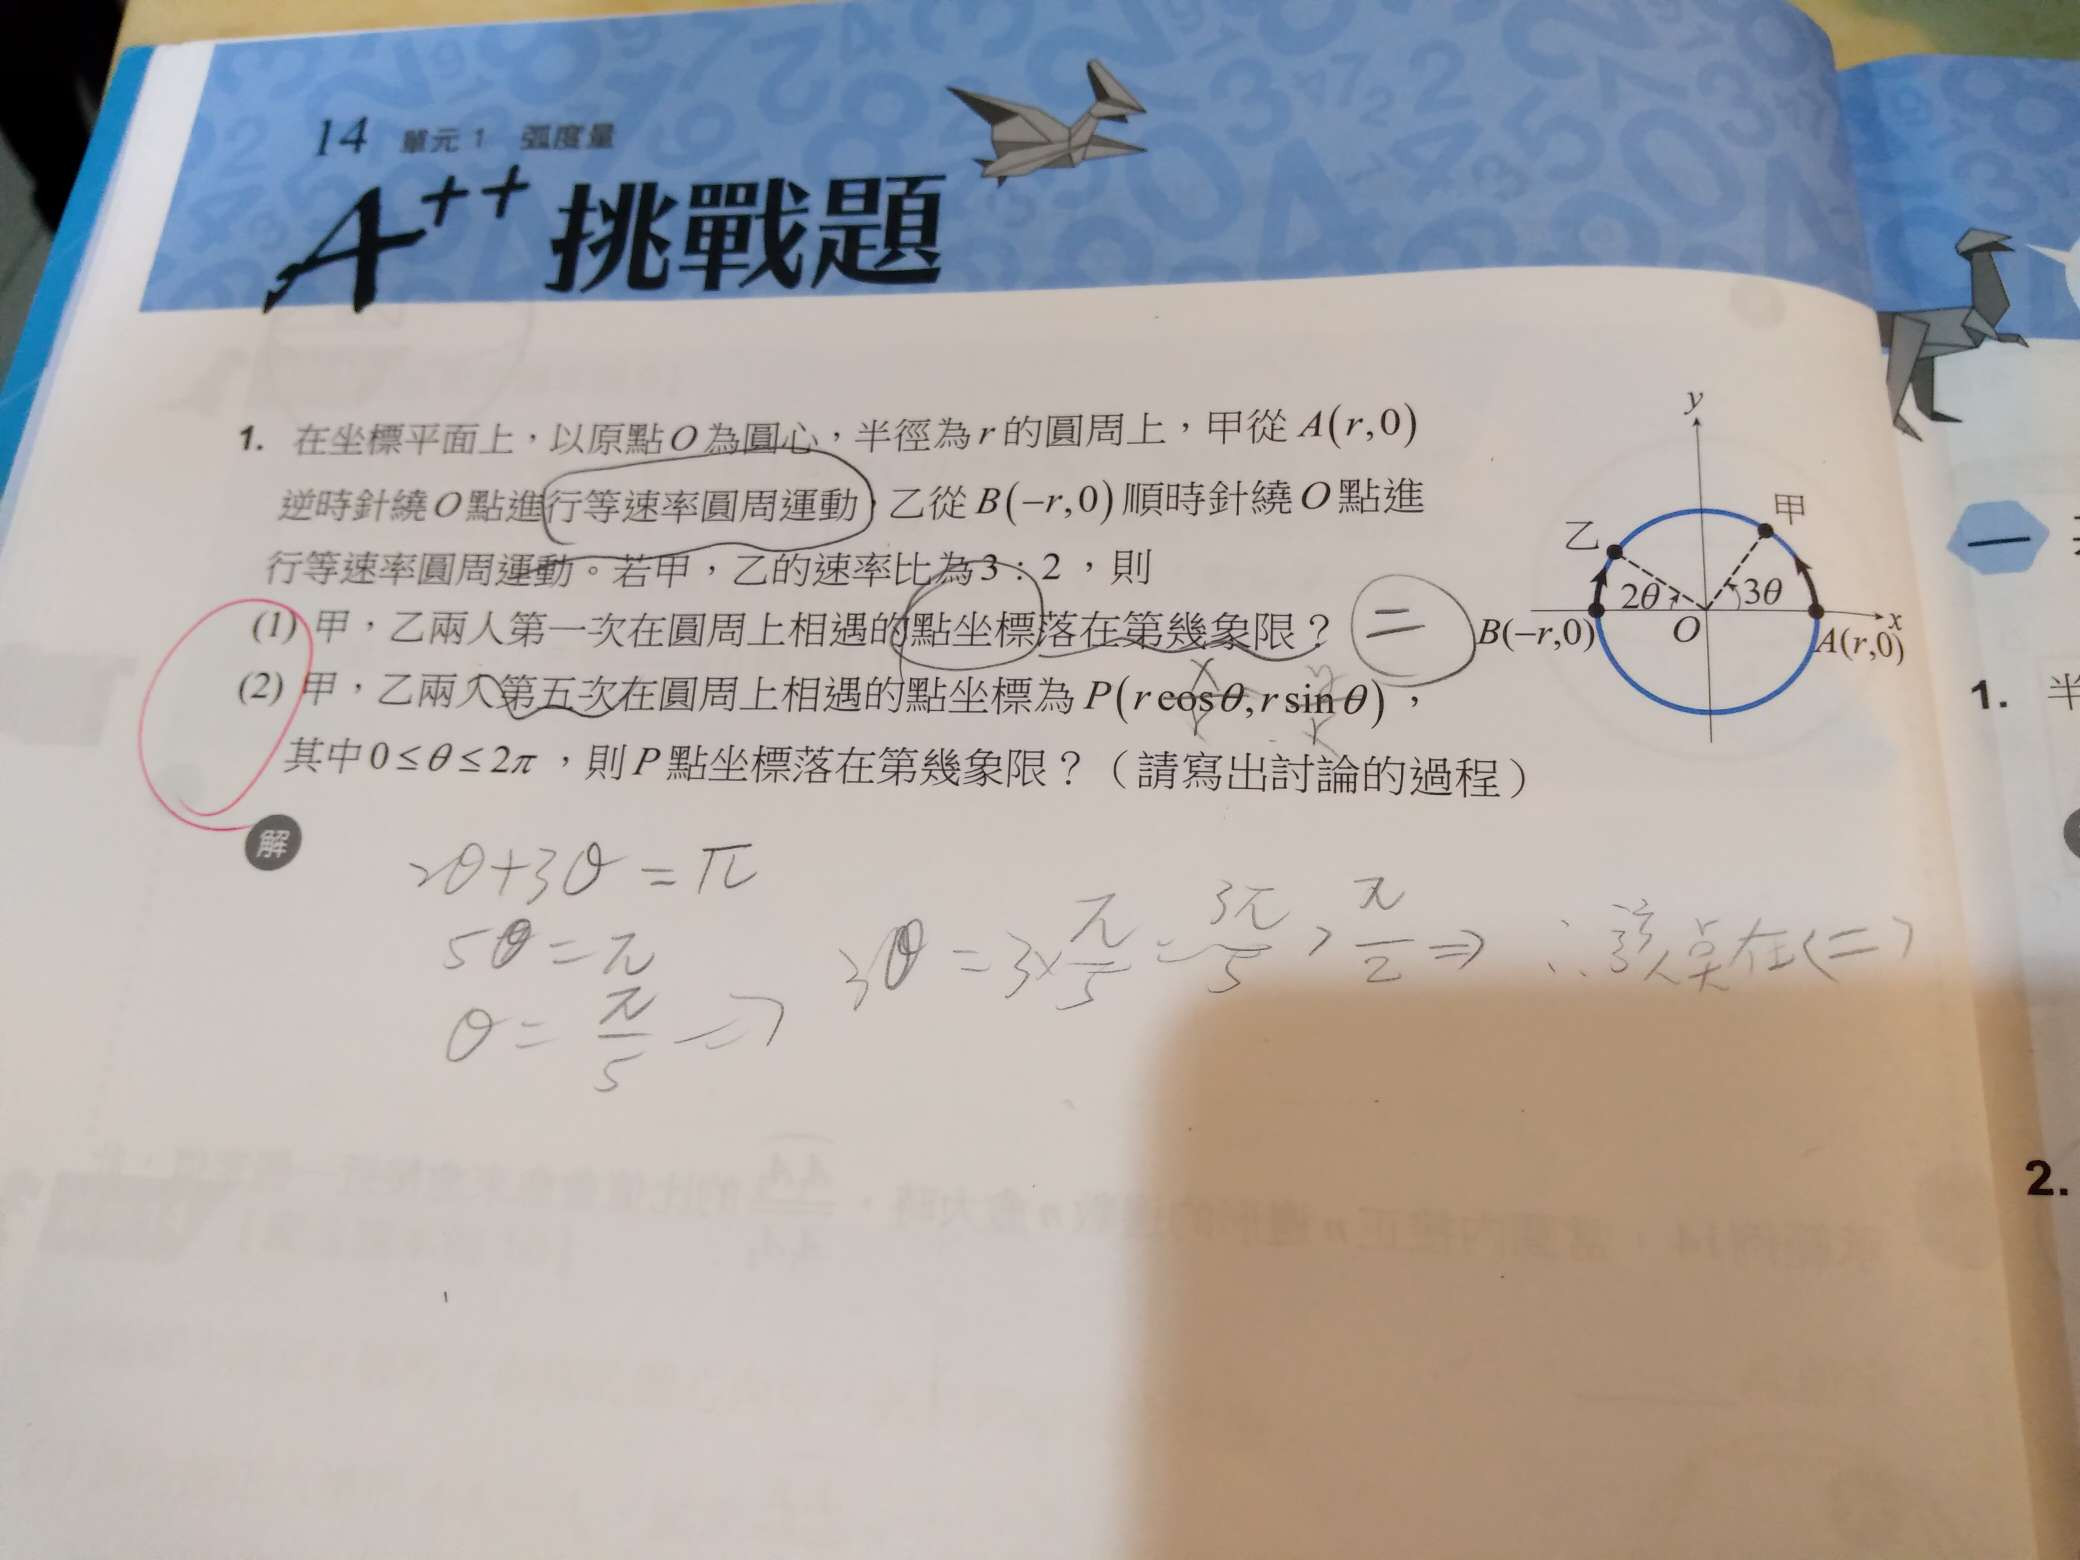 14 單元 1 弧度量
A++ 挑戰題
1. 在坐標平面上，以原點O為圓心，半徑為r的圓周上，甲從A(r,0)
逆時針繞O點進行等速率圓周運動，乙從B(−r,0)順時針繞O點進
行等速率圓周運動。若甲，乙的速率比為3：2，則
(1) 甲，乙兩人第一次在圓周上相遇的點坐標落在第幾象限？ 二
(2) 甲，乙兩人第五次在圓周上相遇的點坐標為P(r cosθ, r sinθ)，
其中0≤θ≤2π，則P點坐標落在第幾象限？（請寫出討論的過程）
y
甲
乙
2θ
3θ
B(−r,0)
O
A(r,0)
x
x
r
y
r
解
2θ+3θ=π
5θ=π
θ=π/5 ⇒ 3θ=3×π/5=3π/5>π/2 ⇒ ∴該點在(二)
一
1. 半
2.